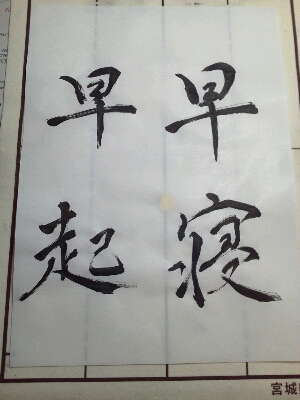 早寝
早起
宮城